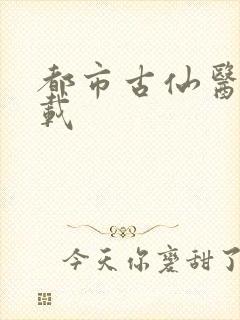 都市古仙醫
載
今天你磨甜了